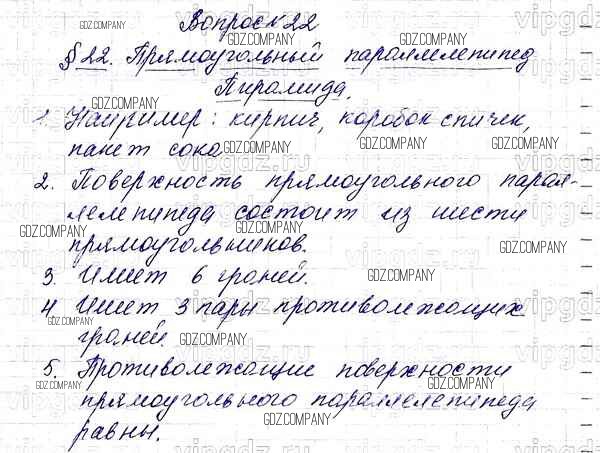 Вопрос к 22
§ 22. Прямоугольный параллелепипед
Пирамида.
1. Например: кирпич, коробок спичек,
пакет сока
2. Поверхность прямоугольного парал-
лелепипеда состоит из шести
прямоугольников.
3. Имеет 6 граней.
4 Имеет 3 пары противолежащих
граней
5. Противолежащие поверхности
прямоугольного параллелепипеда
равны.
GDZ.COMPANY
vipgdz.ru